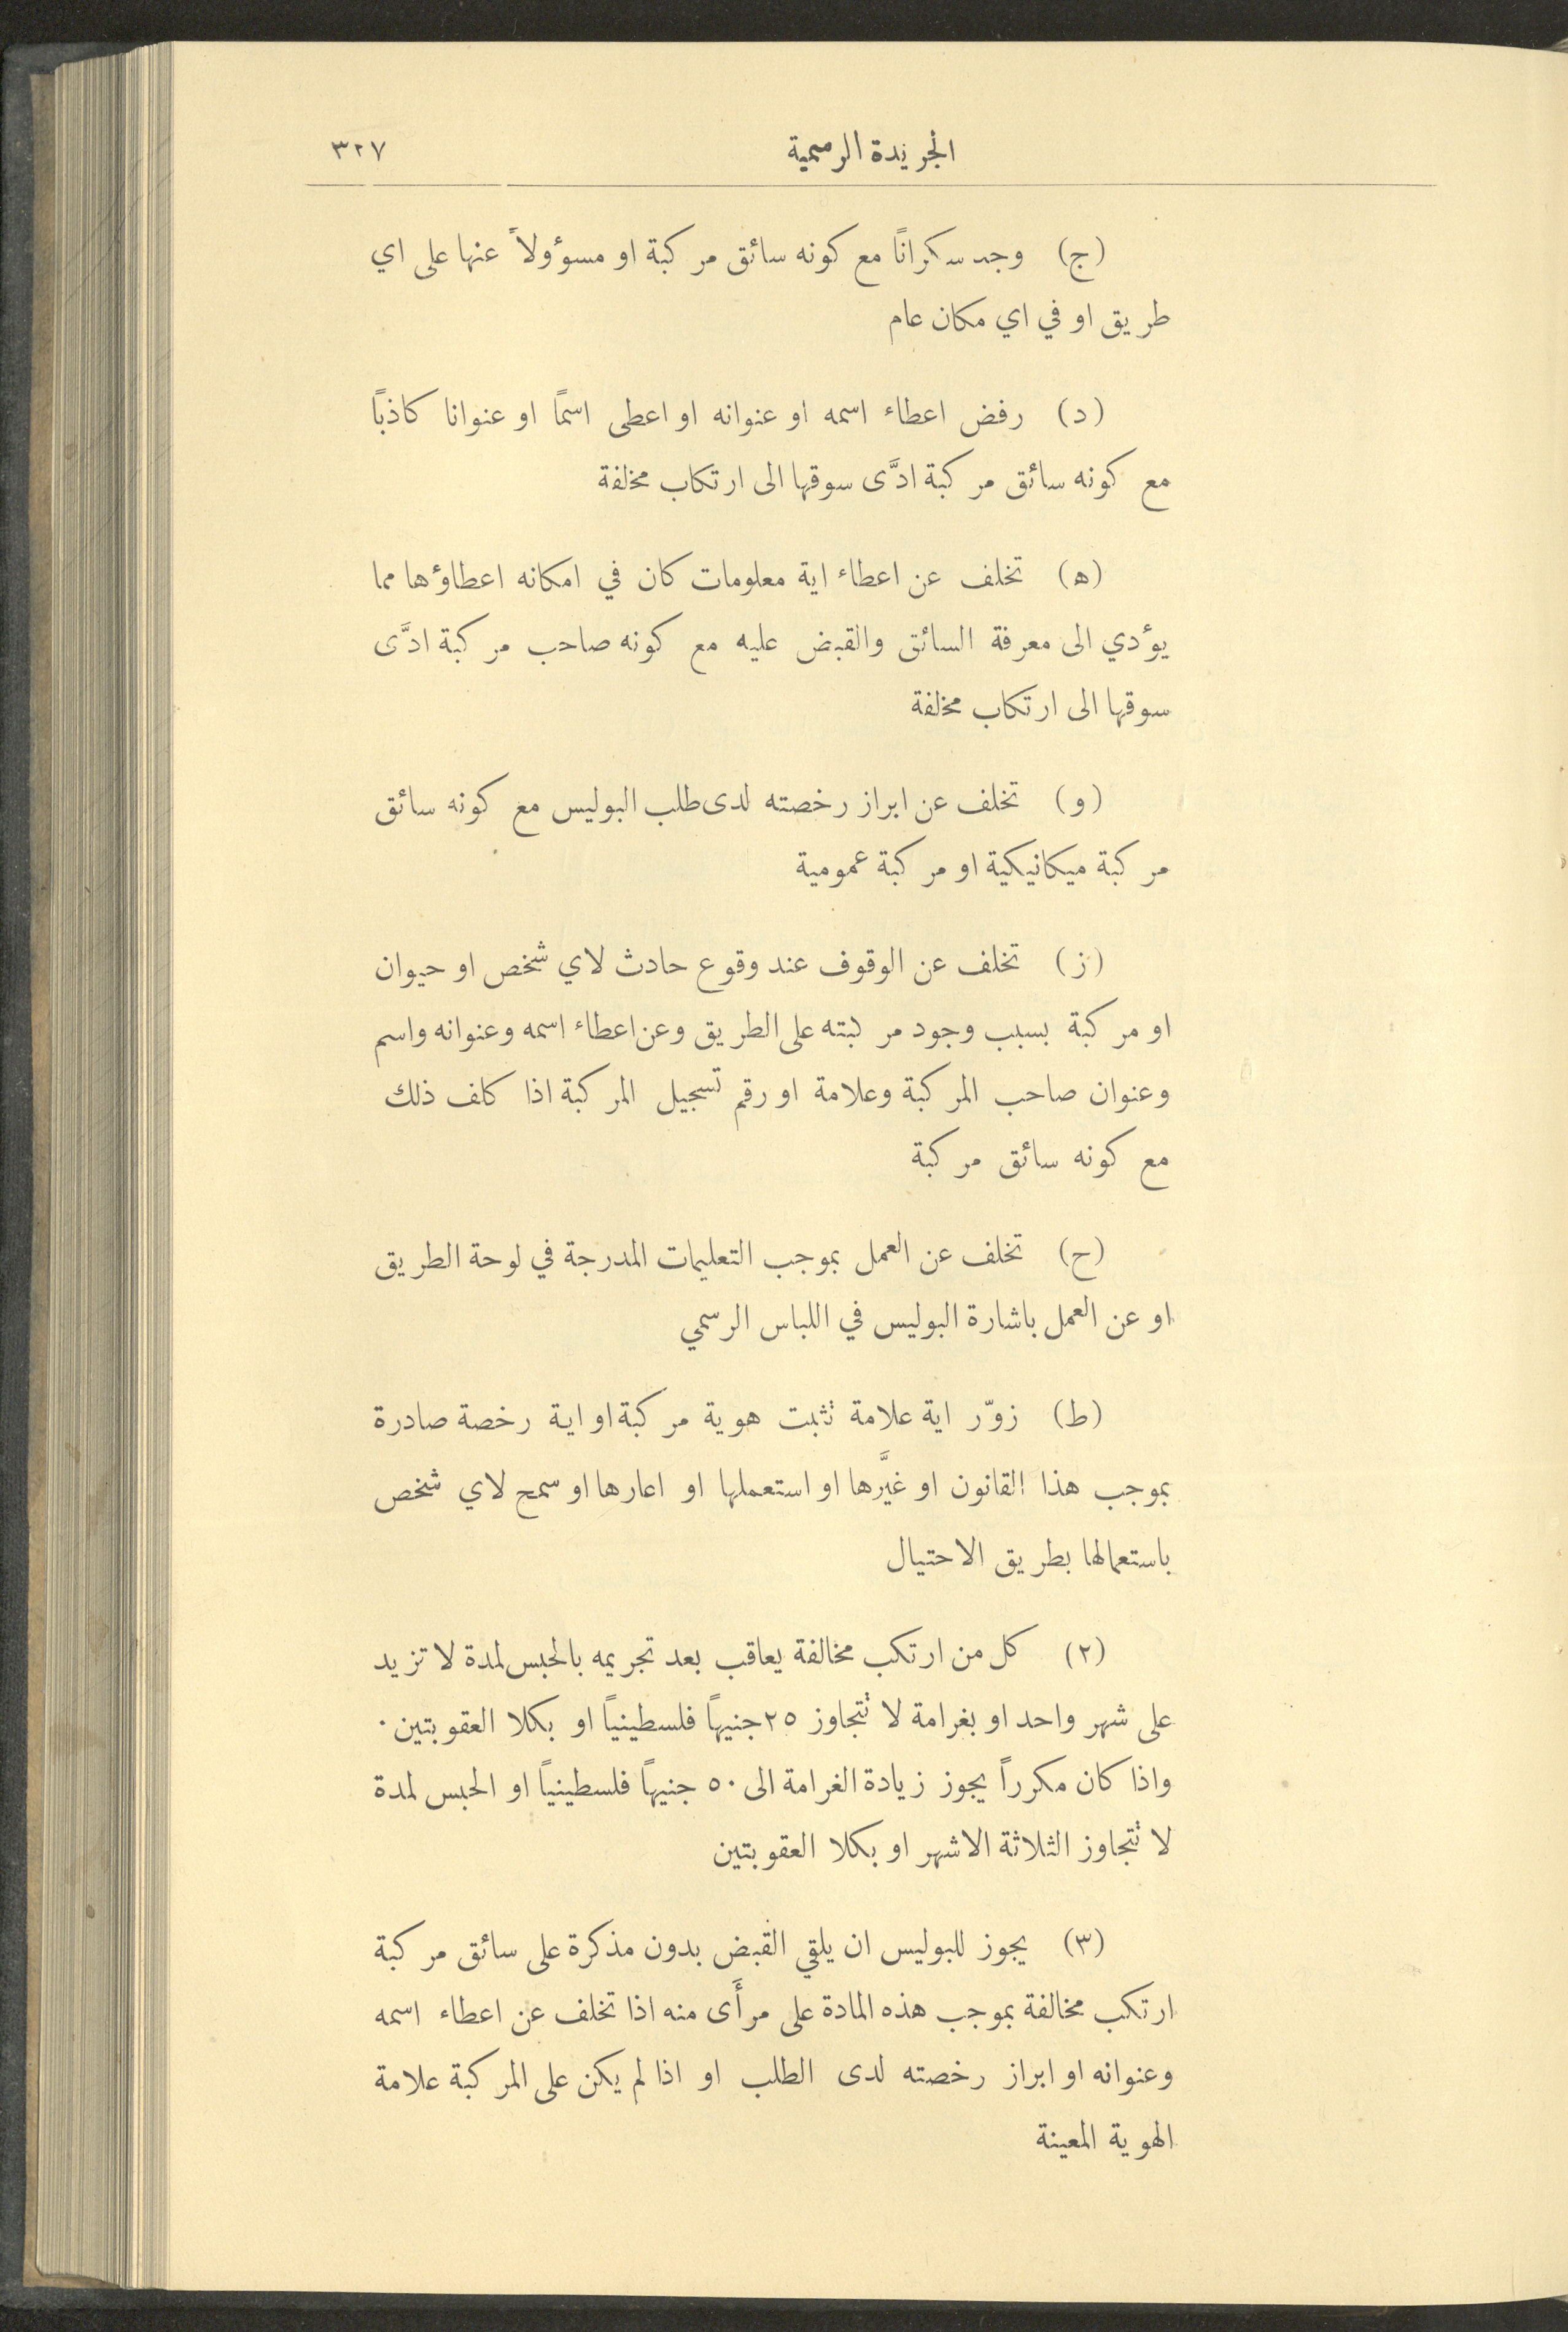 الجريدة الرسمية ٣٢٧
(ج) وجد سكراناً مع كونه سائق مركبة او مسؤولاً عنها على اي
طريق او في اي مكان عام
(د) رفض اعطاء اسمه او عنوانه او اعطى اسماً او عنوانا كاذباً
مع كونه سائق مركبة ادَّى سوقها الى ارتكاب مخلفة
(ه) تخلف عن اعطاء اية معلومات كان في امكانه اعطاؤها مما
يؤدي الى معرفة السائق والقبض عليه مع كونه صاحب مركبة ادَّى
سوقها الى ارتكاب مخلفة
(و) تخلف عن ابراز رخصته لدى طلب البوليس مع كونه سائق
مركبة ميكانيكية او مركبة عمومية
(ز) تخلف عن الوقوف عند وقوع حادث لاي شخص او حيوان
او مركبة بسبب وجود مركبته على الطريق وعن اعطاء اسمه وعنوانه واسم
وعنوان صاحب المركبة وعلامة او رقم تسجيل المركبة اذا كلف ذلك
مع كونه سائق مركبة
(ح) تخلف عن العمل بموجب التعليمات المدرجة في لوحة الطريق
او عن العمل باشارة البوليس في اللباس الرسمي
(ط) زوّر اية علامة تثبت هوية مركبة او اية رخصة صادرة
بموجب هذا القانون او غيَّرها او استعملها او اعارها او سمح لاي شخص
باستعمالها بطريق الاحتيال
(٢) كل من ارتكب مخالفة يعاقب بعد تجريمه بالحبس لمدة لا تزيد
على شهر واحد او بغرامة لا تتجاوز ٢٥ جنيهاً فلسطينياً او بكلا العقوبتين٠
واذا كان مكرراً يجوز زيادة الغرامة الى ٥٠ جنيهاً فلسطينياً او الحبس لمدة
لا تتجاوز الثلاثة الاشهر او بكلا العقوبتين
(٣) يجوز للبوليس ان يلقي القبض بدون مذكرة على سائق مركبة
ارتكب مخالفة بموجب هذه المادة على مرأَى منه اذا تخلف عن اعطاء اسمه
وعنوانه او ابراز رخصته لدى الطلب او اذا لم يكن على المركبة علامة
الهوية المعينة